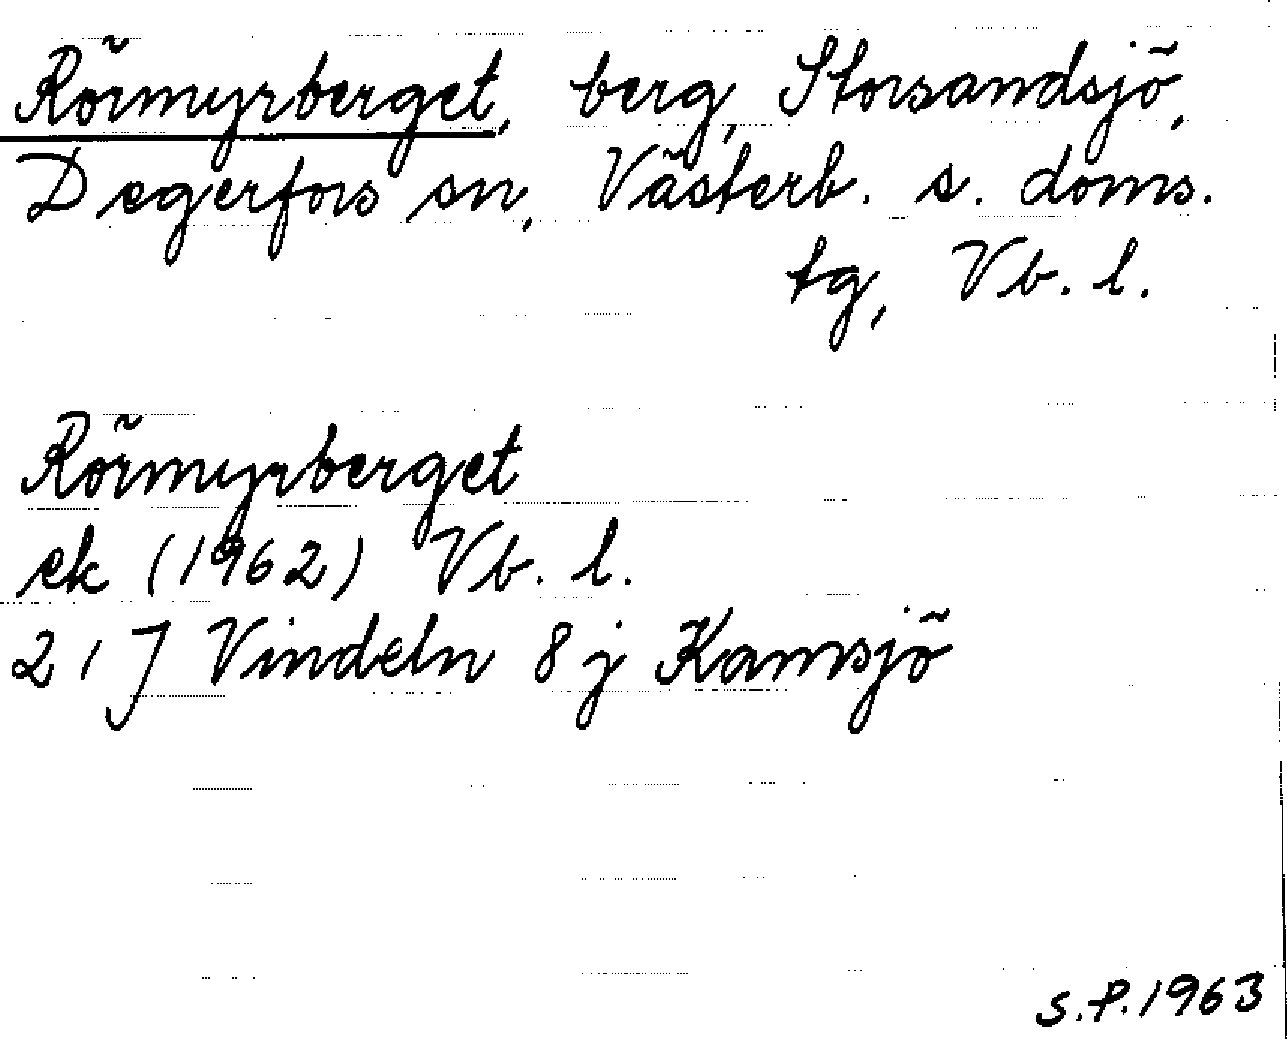 Rörmyrberget, berg, Storsandsjö,
Degerfors sn, Västerb. s. doms.
tg, Vb. l.
Rörmyrberget
ek (1962) Vb. l.
21 J Vindeln 8 j Kamsjö
S.P. 1963